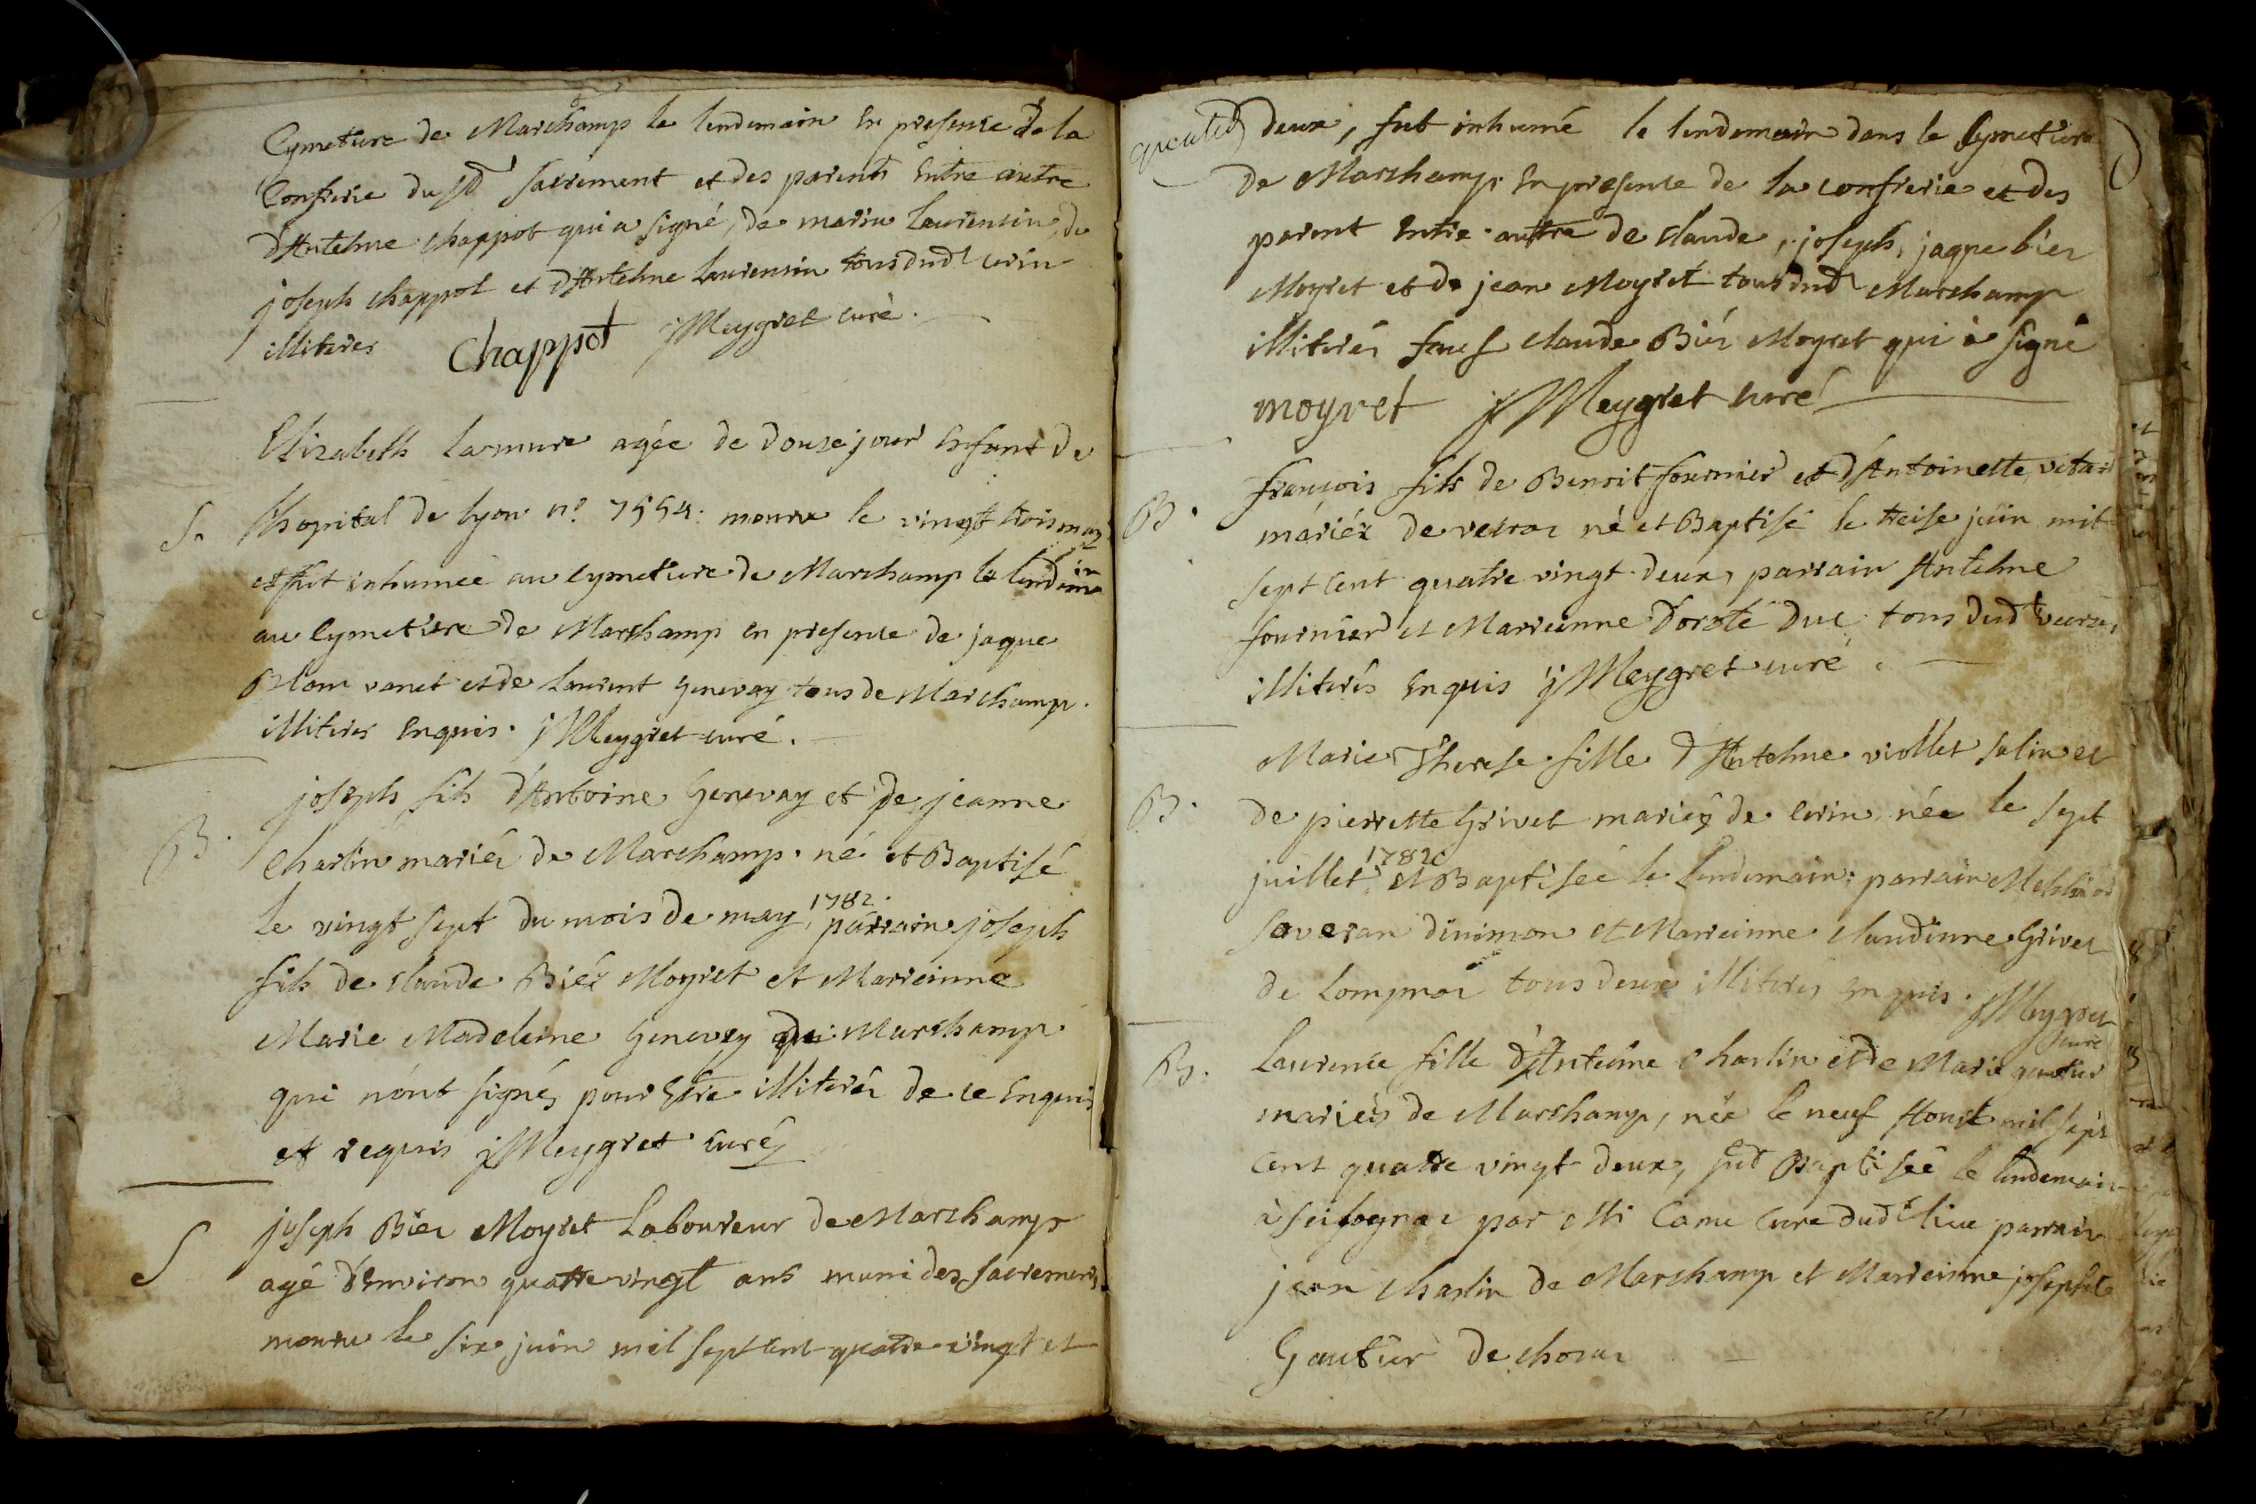 Cymetiere de Marchamp le lendemain En presence de la
Confrerie du st sacrement et des parents Entre autre
d'Antelme chappot qui a signé, de marin Laurensin, de
joseph chappot et d'Antelme Laurensin tous dudt cerin
illiteres Chappot j Meygret curé.
Elizabeth Lamure agée de douse jour Enfant de
S. l'hopital de lyon n.° 7554: mouru le vingt trois may
et fut inhumeé au cymetiere de Marchamp le lendemain
au cymetiere de Marchamp en presence de jaque
vanet et de Laurent Genevay tous de Marchamp.
illiteres Enquis. j Meygret curé.
joseph fils d'Antoine Genevay et de jeanne
B. Charlin mariés de Marchamp. né et Baptisé
le vingt sept du mois de may 1782. parrain joseph
fils de claude Biéz Moyret et Marreinne
Marie Madeleine Genevey de Marchamp
qui n'ont signés pour Etre illiterés de ce Enquis
et requis j Meygret curé
S joseph Biez Moyret Laboureur de Marchamp
agé d'Environ quatre vingt ans muni des sacrements
mouru le six juin mil sept cent quatre vingt et
deux, fut inhumé le lendemain dans le Cymetiere
de Marchamp En presence de la confrerie et des
parent Entre autre de claude, joseph, jaque biez
Moyret et de jean Moyret tous dudt Marchamp
illiterés sauf claude Biéz Moyret qui à signé
moyret j Meygret curé
françois fils de Benoit fournier et d'Antoinette
B. mariéz de né et Baptisé le treise juin mil
sept cent quatre vingt deux, parrain Antelme
fournier et Marreinne Doroté Duc tous dudt
illiterés Enquis j Meygret curé.
Marie Therese fille d'Antelme viollet salin et
B. de pierrette Grivet mariéz de cerin née le sept
juillet 1782 et Baptiseé le lendemain: parrain Melchior
saveran et Marreinne claudinne Grivet
de Lompnaz tous deux illiterés Enquis. j Meygret
curé
B. Laurence fille d'Antelme Charlin et de Marie gautier
mariés de Marchamp, née le neuf Aoust mil sept
cent quatre vingt deux, fut Baptiseé le lendemain
à seifognac par Mr curé dudt lieu parrain
jean charlin de Marchamp et Marreinne josephte
Gautier de choraz